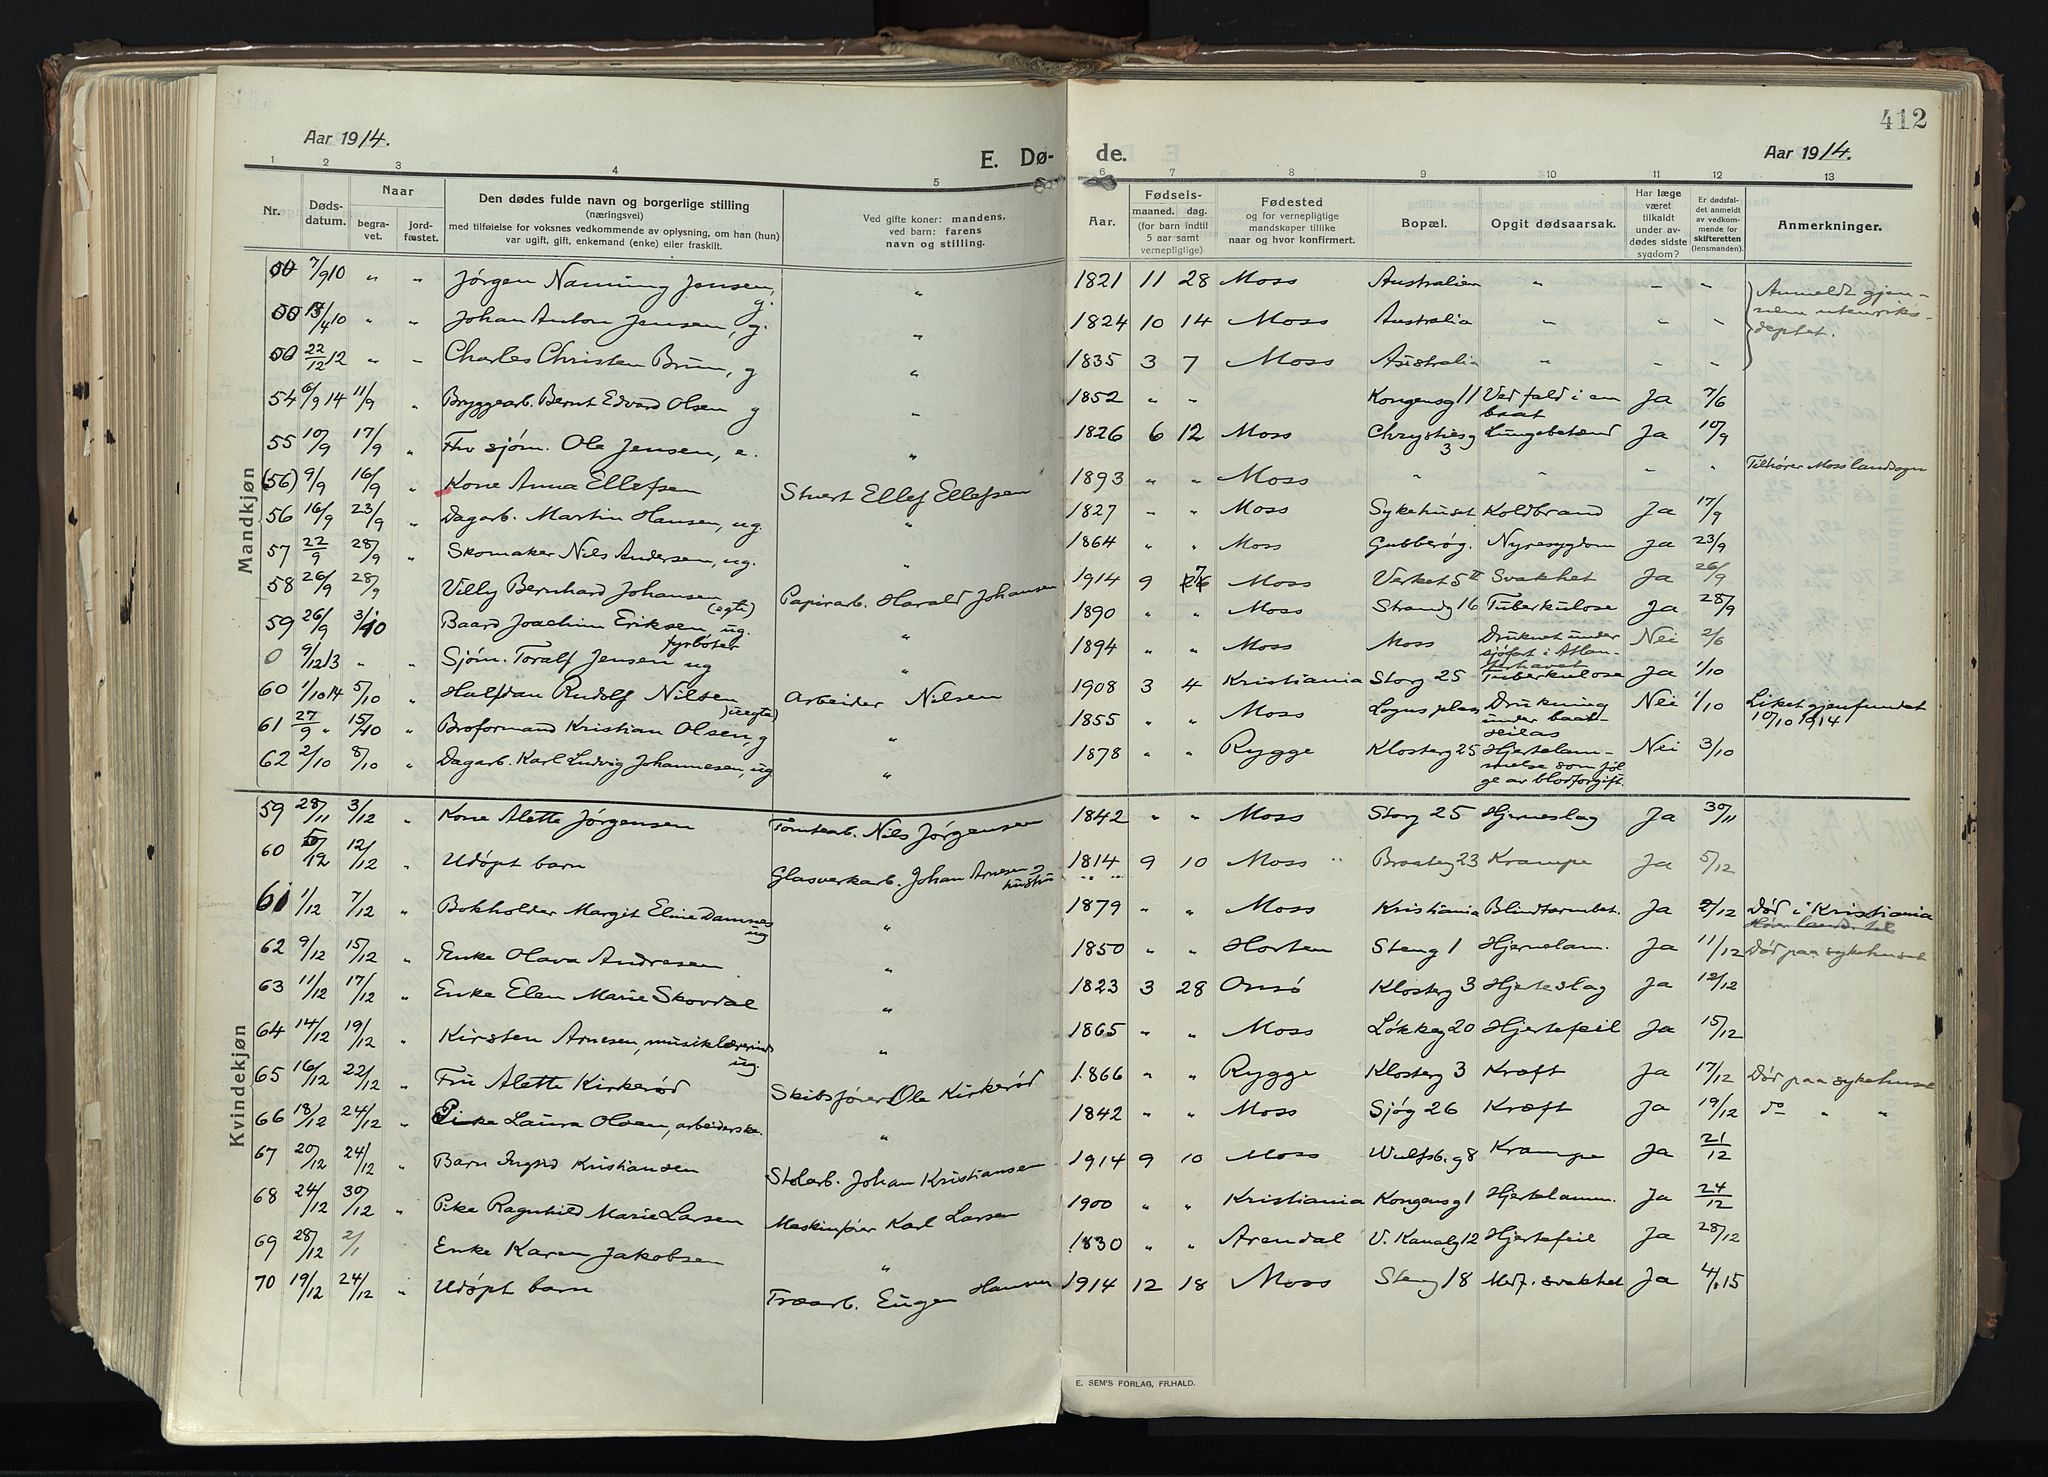 412
Aar 1914.
E. Dø- de.
Aar 1914.
1 2 3 4 5 6 7 8 9 10 11 12 13
Nr.
Døds-
datum.
Naar
begra-
vet.
jord-
fæstet.
Den dødes fulde navn og borgerlige stilling
(næringsvei)
med tilføielse for voksnes vedkommende av oplysning, om han (hun)
var ugift, gift, enkemand (enke) eller fraskilt.
Ved gifte koner: mandens.
ved barn: farens
navn og stilling.
Aar.
Fødsels-
maaned. dag.
(for barn indtil
5 aar samt
vernepligtige)
Fødested
og for vernepligtige
mandskaper tillike
naar og hvor konfirmert.
Bopæl.
Opgit dødsaarsak.
Har læge
været
tilkaldt
under av-
dødes sidste
sygdom?
Er dødsfal-
det anmeldt
av vedkom-
mende for
skifteretten
(lensmanden).
Anmerkninger.
Mandkjøn
00 7/9 10 " " Jørgen Nanning Jensen, g. " 1821 11 28 Moss Australien " - - Anmeldt gjen-
nem utenriks-
deptet.
00 13/4 10 " " Johan Anton Jensen, g. " 1824 10 14 Moss Australia " " "
00 22/12 12 " - Charles Christen Brun, g " 1835 3 7 Moss Australia " - -
54 6/9 14 11/9 " Bryggearb. Bernt Edvard Olsen g " 1852 " - Kongensg 11 Ved fald i en
baat Ja 7/6
55 10/9 17/9 " Fhv sjøm. Ole Jensen, e. " 1826 6 12 Moss Chrystiesg
3 Lungebetænd Ja 10/9
(56) 9/9 16/9 " Kone Anna Ellefsen Stuert Ellef Ellefsen 1893 " " Moss " " " " Tilhører Moss landsogn
56 16/9 23/9 " Dagarb. Martin Hansen, ug. " 1827 - " Moss Sykehuset Koldbrand Ja 17/9
57 22/9 28/9 " Skomaker Nils Andersen, ug. " 1864 " " Moss Gubberøg. Nyresygdom Ja 23/9
58 26/9 28/9 " Villy Bernhard Johansen (egte) Papirarb. Harald Johansen 1914 9 Moss Verket 5 II Svakhet Ja 26/9
59 26/9 3/10 " Baard Joachim Eriksen, ug.
fyrbøter " 1890 " " Moss Strandg 16 Tuberkulose Ja 28/9
0 9/12 13 " " Sjøm. Toralf Jensen ug " 1894 " " Moss Moss Druknet under
sjøfart i Atlan-
terhavet Nei 2/6
60 1/10 14 5/10 " Halfdan Rudolf Nilsen (uegte) Arbeider Nilsen 1908 3 4 Kristiania Storg 25 Tuberkulose Ja 1/10
61 27/9 " 15/10 " Broformand Kristian Olsen, g " 1855 " " Moss Logns plas Drukning
under baat-
seilas Nei 1/10 Liket gjenfundet
10/10 1914
62 2/10 8/10 " Dagarb. Karl Ludvig Johannesen, ug " 1878 " " Rygge Klosterg 25 Hjertelam-
melse som føl
ge av blodforgift. Nei 3/10
Kvindekjøn
59 28/11 3/12 " Kone Alette Jørgensen Tomtearb. Nils Jørgensen 1842 " " Moss Storg 25 Hjerneslag Ja 30/11
60 5/12 12/12 " Udøpt barn Glasverkarb. Johan Arnesen og
hustru 1814 9 10 Moss " Braateg 23 Krampe Ja 5/12
61 1/12 7/12 " Bokholder Margit Eline Damnes
ug " 1879 " " Moss Kristiania Blindtarmbet. Ja 2/12 Død i Kristiania
62 9/12 15/12 " Enke Olava Andresen " 1850 " " Horten Steng 1 Hjernelam. Ja 11/12 Død paa sykehuset
63 11/12 17/12 " Enke Elen Marie Skovdal " 1823 3 28 Onsø Klosterg 3 Hjerteslag Ja 12/12
64 14/12 19/12 " Kirsten Arnesen, musiklærerinde
ug. " 1865 " " Moss Løkkeg 20 Hjertefeil Ja 15/12
65 16/12 22/12 " Fru Alette Kirkerød Skibsfører Ole Kirkerød 1866 " " Rygge Klosterg 3 Kræft Ja 17/12 Død paa sykehuset
66 18/12 24/12 " Pike Laura Olsen, arbeiderske. " 1842 " " Moss Sjøg 26 Kræft Ja 19/12 do " "
67 20/12 24/12 " Barn Ingrid Kristiansen Stolarb. Johan Kristiansen 1914 9 10 Moss Wulfsb. g 8 Krampe Ja 21/12
68 24/12 30/12 " Pike Ragnhild Marie Larsen Maskinfører Karl Larsen 1900 " " Kristiania Kongensg 1 Hjertelamm. Ja 24/12
69 28/12 2/1 " Enke Karen Jakobsen " 1830 " " Arendal V. Kanalg 12 Hjertefeil Ja 28/12
70 19/12 24/12 " Udøpt barn Træarb. Eugen Hansen 1914 12 18 Moss Steng 18 Medf. svakhet Ja 4/1 15
E. SEM'S FORLAG, FR.HALD.